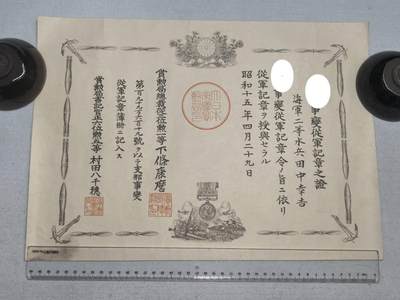 事變從軍記章之證
海軍二等水兵田中幸吉
事變從軍記章令ノ旨ニ依リ
從軍記章ヲ授與セラル
昭和十五年四月二十九日
賞勳局總裁從三位勳一等下條康麿
號ヲ以テ支那事變
從軍記章簿册ニ記入ス
賞勳局書記官正六位勳五等村田八千穗